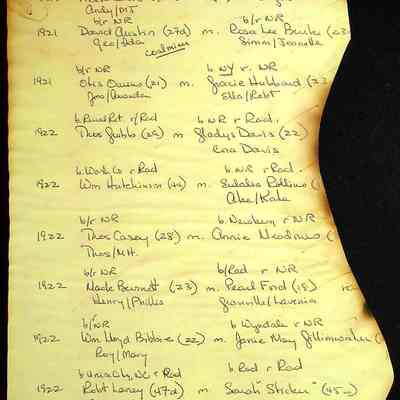 Andy/MJ
b/r NR b/r NR
1921 David Austin (27d) m. Rosa Lee Burke (23
Geo/Ada coalminer Simm/Jeanette
b/r NR b. NY r. NR
1921 Otis Owens (21) m. Gracie Hubbard (23
Joe/Amanda Ella/Robt
b. Rural Ret. r/Rad b. NR r Rad.
1922 Thos Gubbs (29) m Gladys Davis (22)
Cora Davis
b. Wash Co r Rad b. NR r Rad.
1922 Wm Hutchinson (44) m. Eulalia Rollins (
Ake/Kate
b/r NR b. Newbern r NR
1922 Thos Casey (28) m. Annie Meadows (
Thos/MH.
b/r NR b/Rad r NR
1922 Mack Burnett (23) m. Pearl Ford (18)
Henry/Phillis Granville/Lavenia
b/NR b. Wysdale r NR
1922 Wm Lloyd (22) m. Janie May Gillinwater (
Roy/Mary
b Union City, NC r Rad b. Rad r Rad
1922 Robt Laney (47d) m Sarah "Sticker" (45